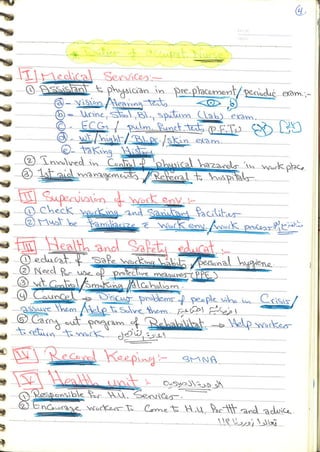 4
* Duties of Occupat. Nurse
I Medical Services:-
① Assistant to physician in pre.placement / periodic exam:-
a- vision / Hearing tests
b- urine, stool, Bl., sputum (Lab) exam.
c- ECG / pulm. Funct. tests (P.F.Ts)
d- wt / hight / Bl.Pr / skin exam.
e- taking History
② Involved in Control of physical hazards in work place
③ 1st aid managements / Referral to hospitals-
II Supervision of work env.:-
① Check working and Sanitary Facilities
② Must be Familiarize & work env. / work process
III Health and Safety educat.:-
① educat. of Safe working habits / personal hygiene
② Need for use of protective measures (PPE)
③ wt Control / Smoking / alcoholism
④ Councel → Discuss problems of people who in Crisis /
assure them / Help to solve them
⑤ Carry out program of Rehabilitat. → Help worker
to return to work.
IV Record Keeping:-
V Health unit:-
① Responsible for H.U. Services-
② Encourage worker to Come to H.U. for ttt and advice